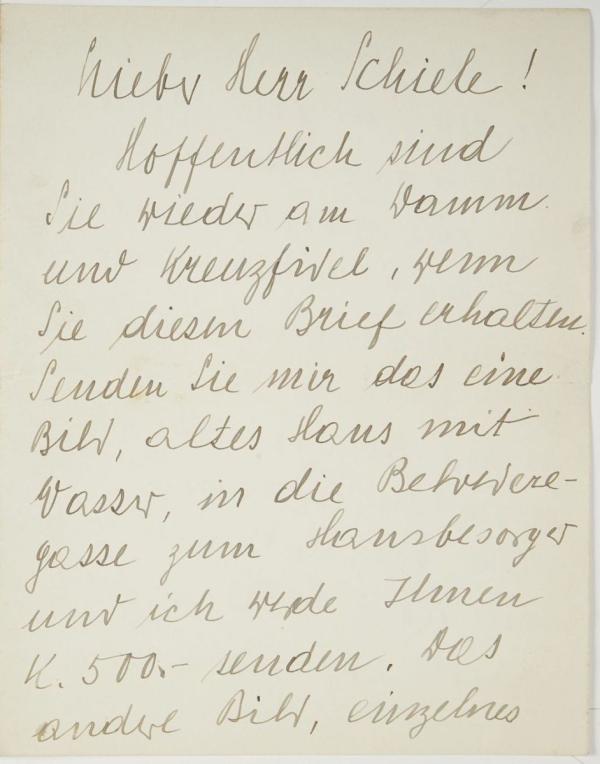 Lieber Herr Schiele!
Hoffentlich sind
Sie wieder am Damm
und kreuzfidel, wenn
Sie diesen Brief erhalten.
Senden Sie mir das eine
Bild, altes Haus mit
Wasser, in die Belvedere-
gasse zum Hausbesorger
und ich werde Ihnen
K. 500.- senden. Das
andere Bild, einzelnes